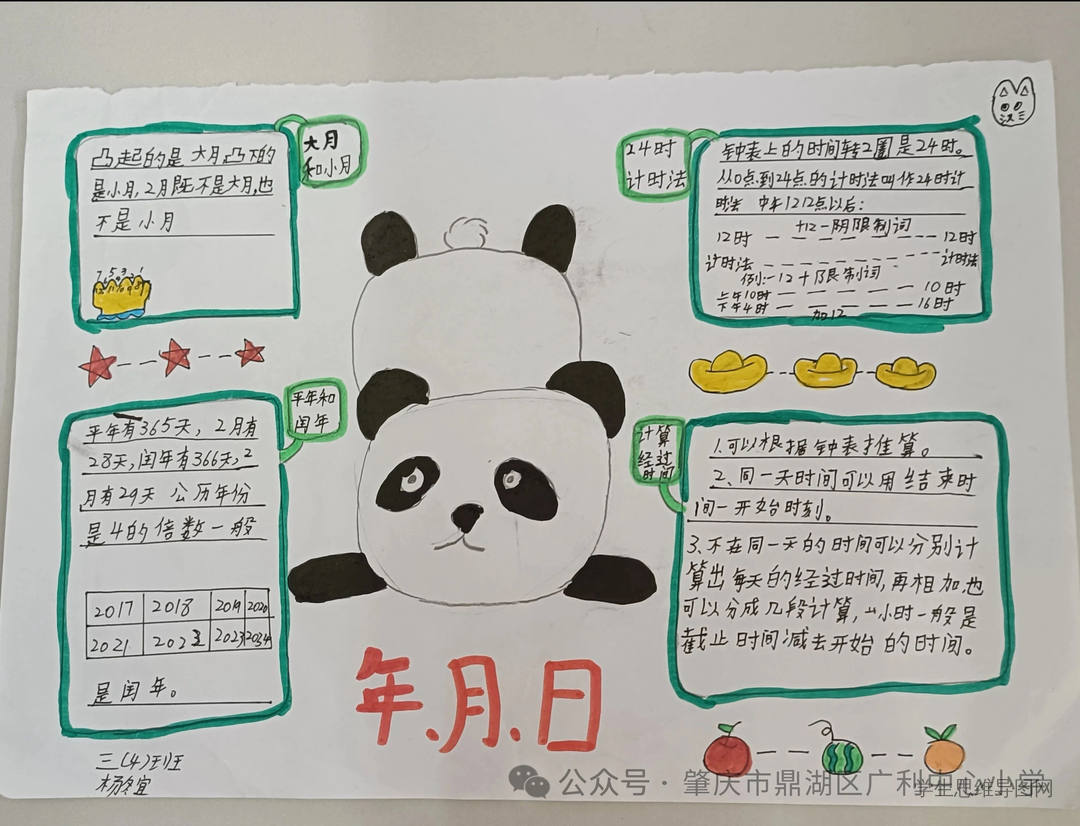 大月
和小月
凸起的是大月凸下的
是小月,2月既不是大月,也
不是小月
24时
计时法
钟表上的时间转2圈是24时。
从0点到24点的计时法叫作24时计
时法 中午1212点以后:
+12-阴限制词
12时 12时
计时法 计时法
例:-12+限制词
上午10时 10时
下午4时 16时
加12
平年和
闰年
平年有365天, 2月有
28天,闰年有366天,2
月有29天 公历年份
是4的倍数一般
2017 2018 2019 2020
2021 2022 2023 2024
是闰年。
计算
经过
时间
1.可以根据钟表推算。
2、同一天时间可以用结束时
间一开始时刻。
3、不在同一天的时间可以分别计
算出每天的经过时间,再相加也
可以分成几段计算,小时一般是
截止时间减去开始的时间。
年.月.日
三(4)班
公众号·肇庆市鼎湖区广利中心小学
学生思维导图网